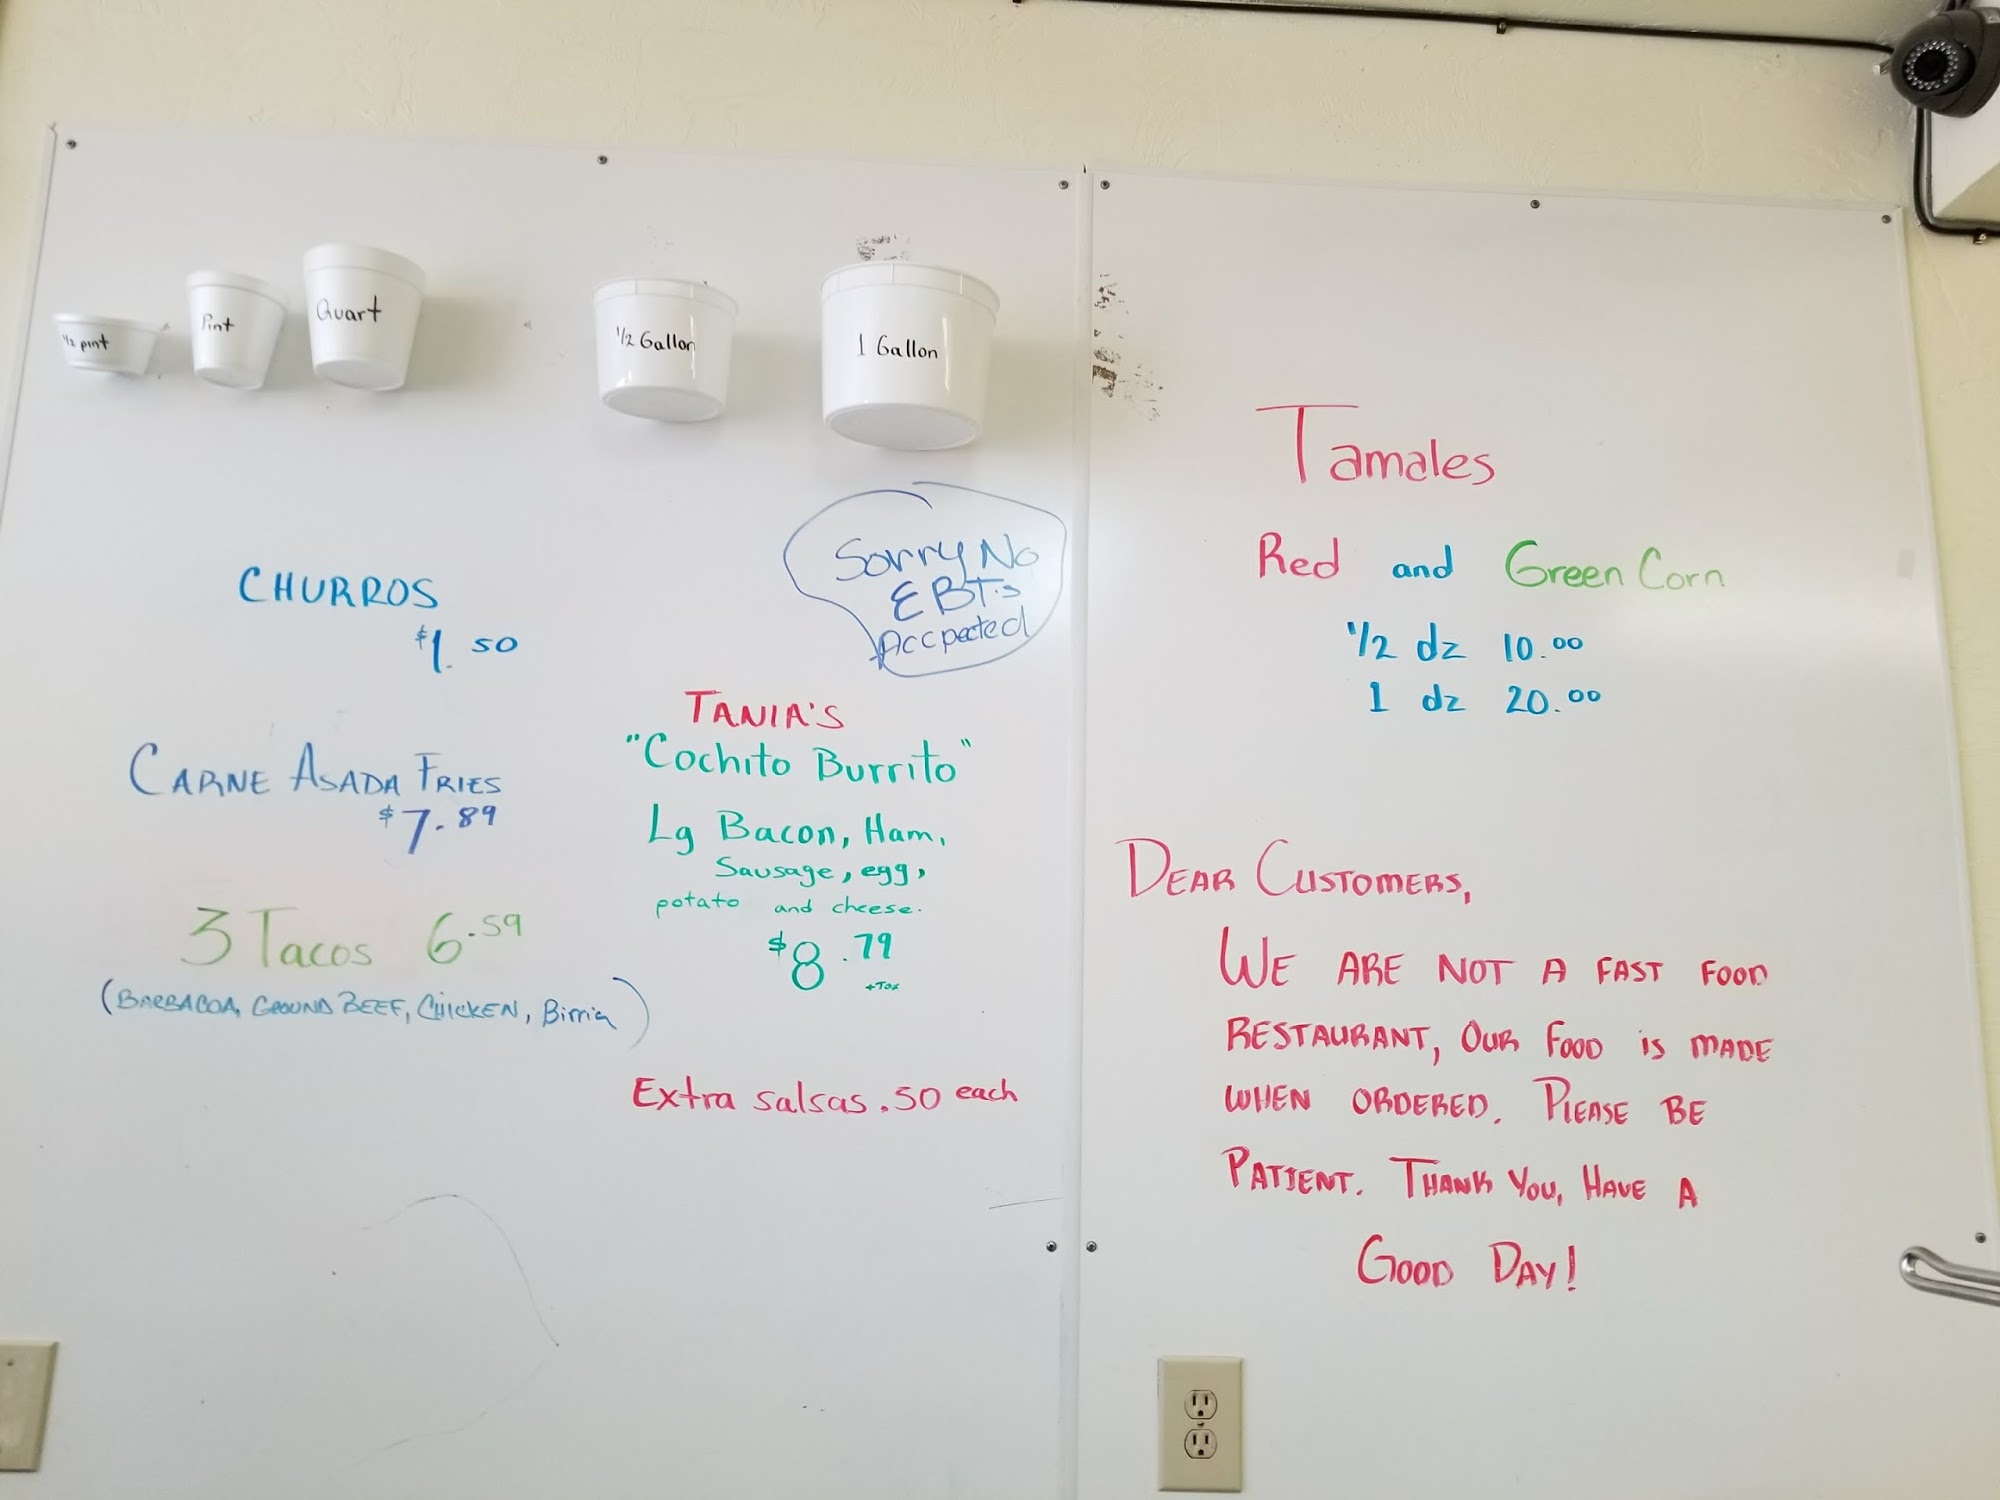 1/2 pint
Pint
Quart
1/2 Gallon
1 Gallon
CHURROS
$1.50
CARNE ASADA FRIES
$7.89
3 Tacos 6.59
(BARBACOA, GROUND BEEF, CHICKEN, Birria)
Sorry No
EBT's
Accpected
TANIA'S
"Cochito Burrito"
Lg Bacon, Ham,
Sausage, egg,
potato and cheese.
$8.79
+Tax
Extra salsas .50 each
Tamales
Red and Green Corn
1/2 dz 10.00
1 dz 20.00
DEAR CUSTOMERS,
WE ARE NOT A FAST FOOD
RESTAURANT, OUR FOOD iS MADE
WHEN ORDERED. PLEASE BE
PATIENT. THANK YOU, HAVE A
GOOD DAY!